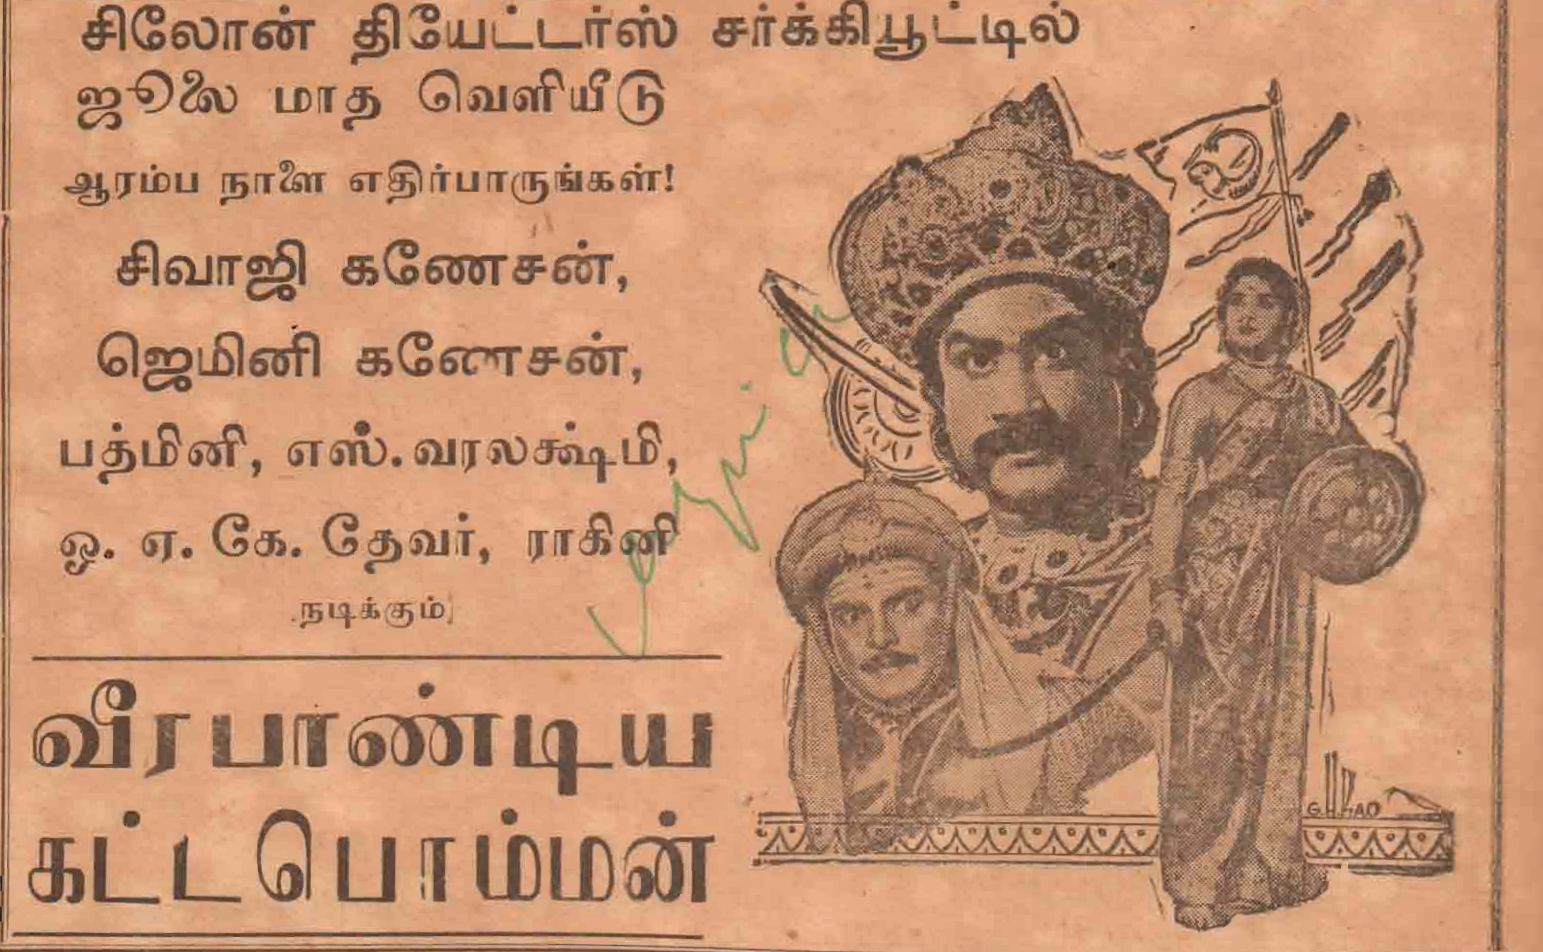 சிலோன் தியேட்டர்ஸ் சர்க்கியூட்டில்
ஜூலை மாத வெளியீடு
ஆரம்ப நாளை எதிர்பாருங்கள்!
சிவாஜி கணேசன்,
ஜெமினி கணேசன்,
பத்மினி, எஸ்.வரலக்ஷ்மி,
ஓ. ஏ. கே. தேவர், ராகினி
நடிக்கும்
வீரபாண்டிய
கட்டபொம்மன்